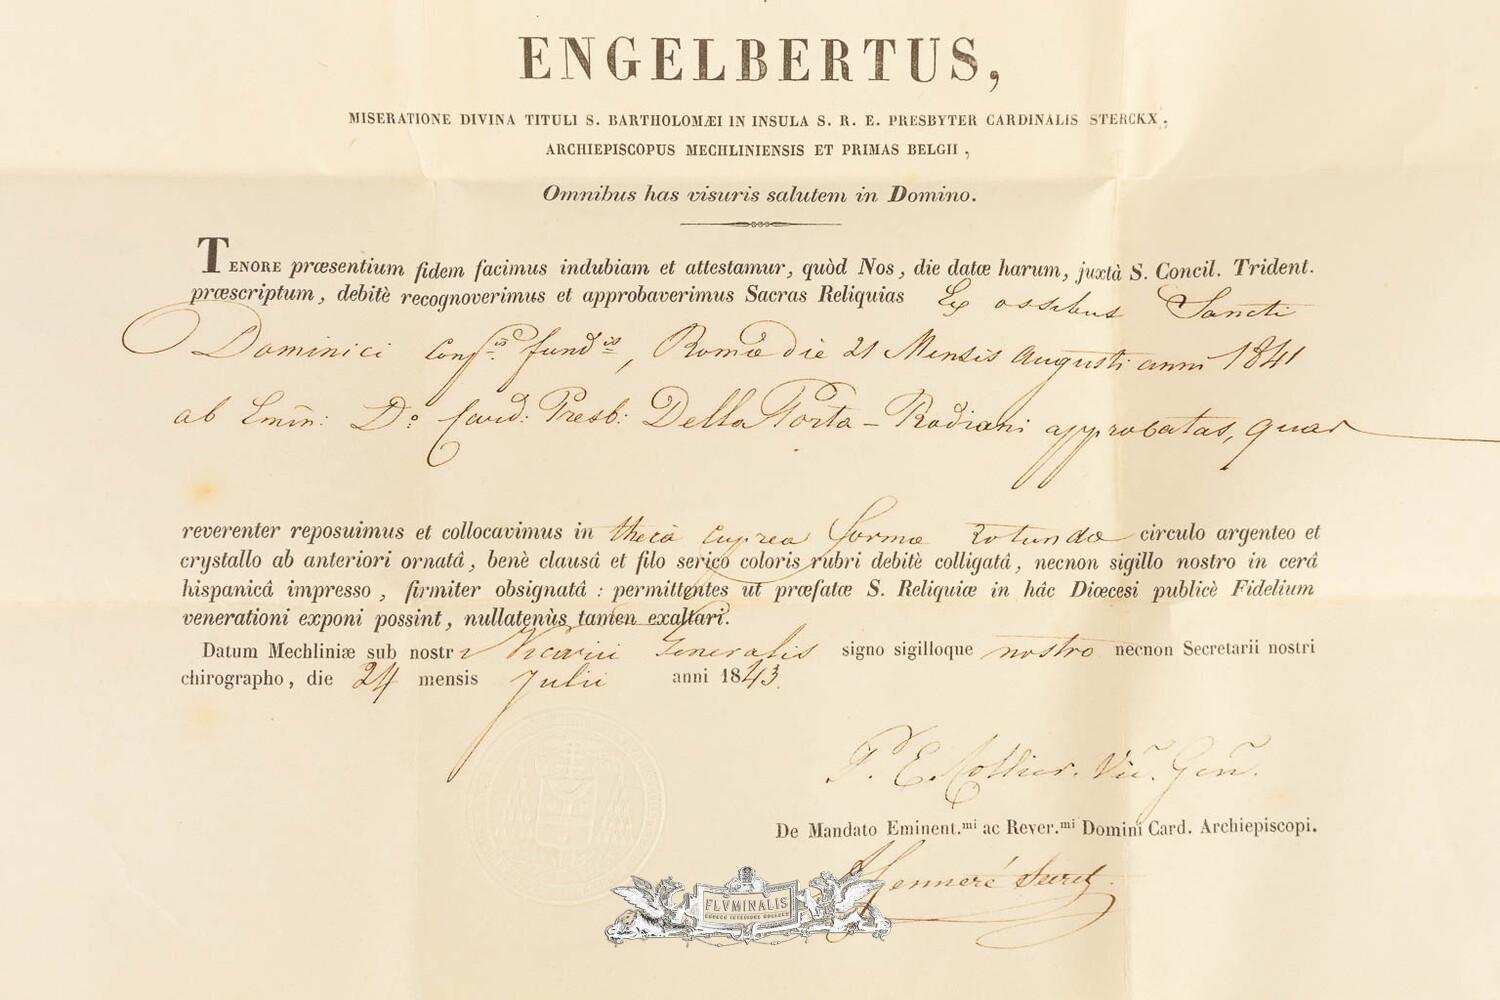 ENGELBERTUS,
MISERATIONE DIVINA TITULI S. BARTHOLOMÆI IN INSULA S. R. E. PRESBYTER CARDINALIS STERCKX,
ARCHIEPISCOPUS MECHLINIENSIS ET PRIMAS BELGII,
Omnibus has visuris salutem in Domino.
TENORE præsentium fidem facimus indubiam et attestamur, quòd Nos, die datæ harum, juxtà S. Concil. Trident.
præscriptum, debitè recognoverimus et approbaverimus Sacras Reliquias Ex ossibus Sancti
Dominici Confis fundis, Romæ die 21 Mensis Augusti anni 1841
ab Emin: Do Card: Presb: Della Porta - Rodiani approbatas, quas
reverenter reposuimus et collocavimus in thecâ cuprea formæ rotundæ circulo argenteo et
crystallo ab anteriori ornatâ, benè clausâ et filo serico coloris rubri debitè colligatâ, necnon sigillo nostro in cerâ
hispanicâ impresso, firmiter obsignatâ : permittentes ut præfatæ S. Reliquiæ in hâc Diœcesi publicè Fidelium
venerationi exponi possint, nullatenùs tamen exaltari.
Datum Mechliniæ sub nostri Vicarii Generalis signo sigilloque nostro necnon Secretarii nostri
chirographo, die 24 mensis Julii anni 1843.
P. E. Collier. Vic. Gen.
De Mandato Eminent.mi ac Rever.mi Domini Card. Archiepiscopi.
FLVMINALIS